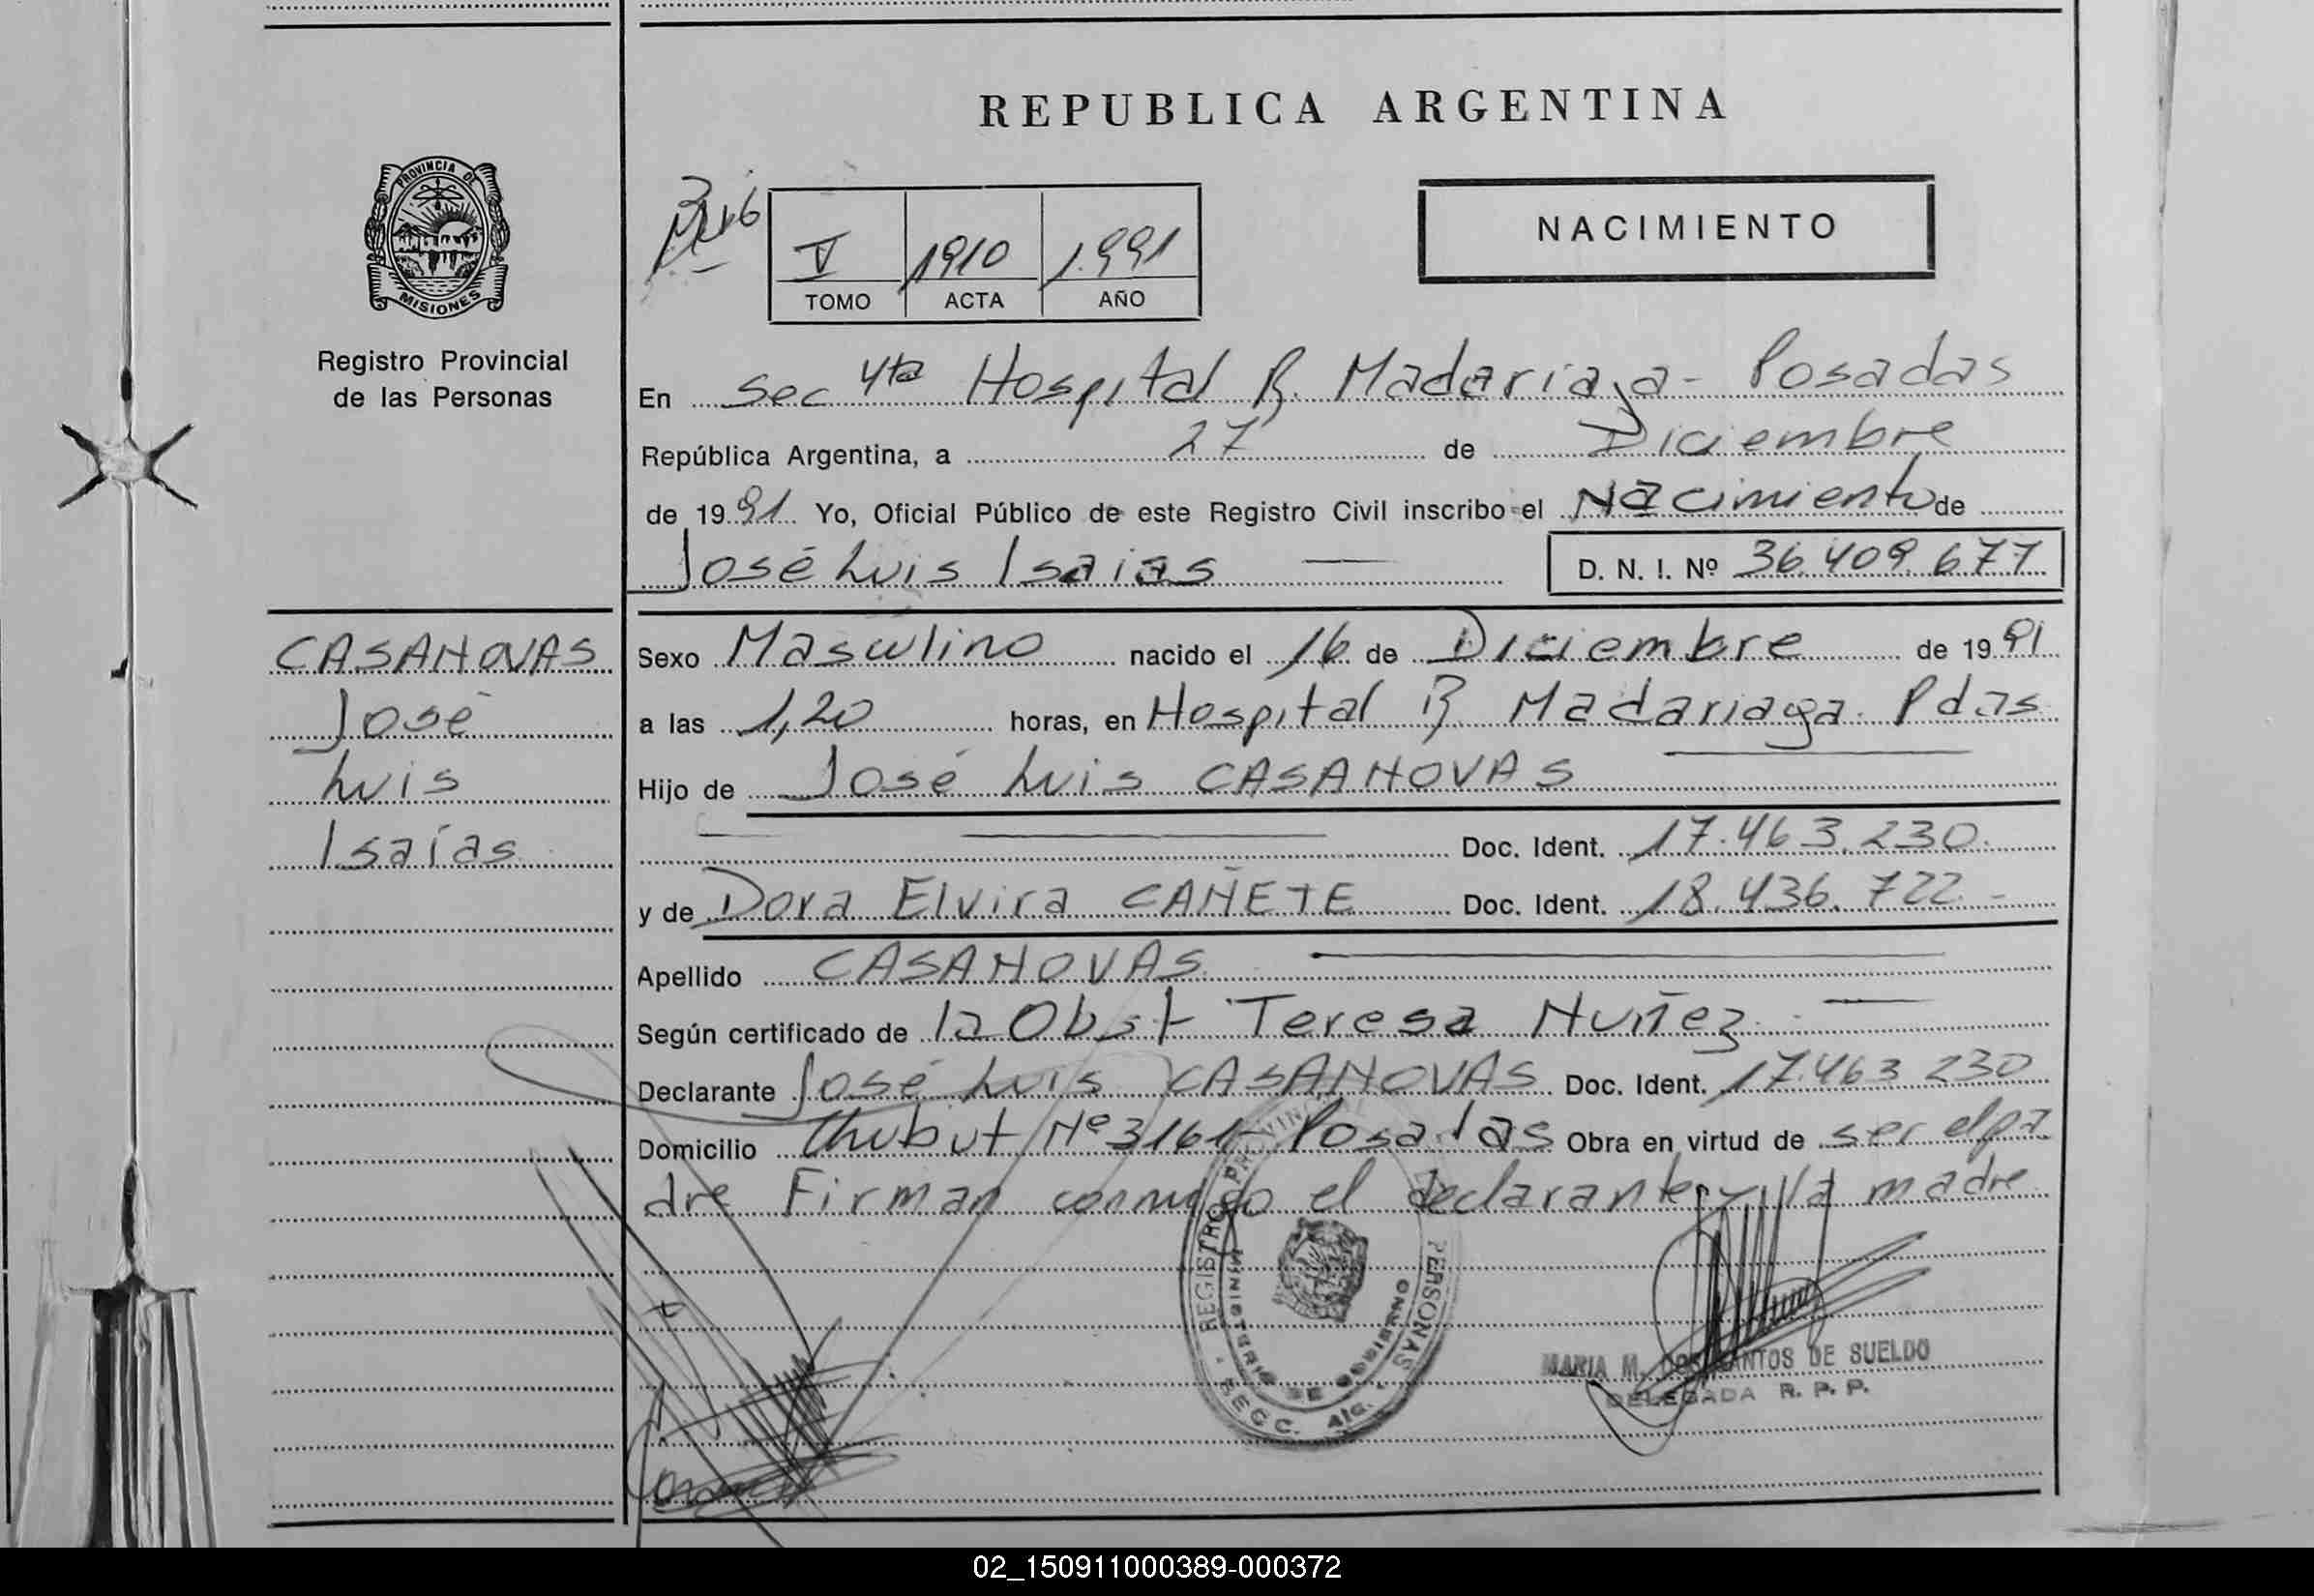 REPUBLICA ARGENTINA
PROVINCIA DE
MISIONES
Registro Provincial
de las Personas
V 1910 1.991
TOMO ACTA AÑO
NACIMIENTO
En Sec 4ta Hospital R. Madariaga - Posadas
República Argentina, a 27 de Diciembre
de 1991 Yo, Oficial Público de este Registro Civil inscribo el Nacimiento de
José Luis Isaias D. N. I. Nº 36.409.677
CASANOVAS
José
Luis
Isaías
Sexo Masculino nacido el 16 de Diciembre de 1991
a las 1,20 horas, en Hospital R Madariaga. Pdas
Hijo de José Luis CASANOVAS
Doc. Ident. 17.463.230.
y de Dora Elvira CAÑETE Doc. Ident. 18.436.722.-
Apellido CASANOVAS
Según certificado de la Obst Teresa Nuñez
Declarante José Luis CASANOVAS Doc. Ident. 17.463 230
Domicilio Chubut Nº 3161 Posadas Obra en virtud de ser el pa
dre Firman conmigo el declarante y la madre
REGISTRO PROVINCIAL PERSONAS
MINISTERIO DE GOBIERNO
SECC. 4ta.
MARIA M. DOS SANTOS DE SUELDO
DELEGADA R. P. P.
02_150911000389-000372